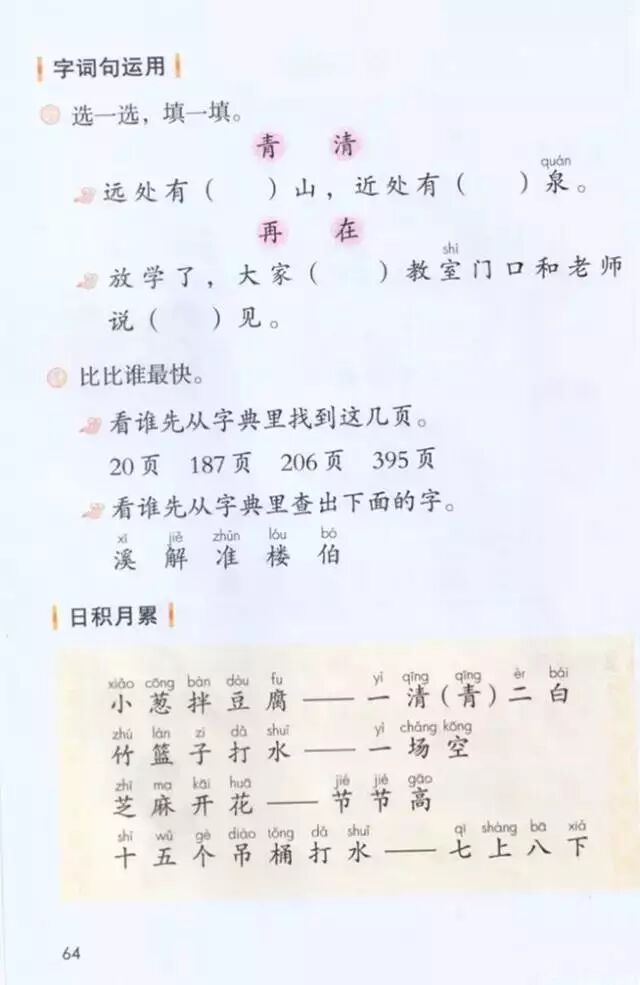 字词句运用
选一选，填一填。
青 清
quán
远处有（ ）山，近处有（ ）泉。
再 在
shì
放学了，大家（ ）教室门口和老师
说（ ）见。
比比谁最快。
看谁先从字典里找到这几页。
20页 187页 206页 395页
看谁先从字典里查出下面的字。
xī jiě zhǔn lóu bó
溪 解 准 楼 伯
日积月累
xiǎo cōng bàn dòu fu yì qīng qīng èr bái
小葱拌豆腐——一清（青）二白
zhú lán zi dǎ shuǐ yì chǎng kōng
竹篮子打水——一场空
zhī ma kāi huā jié jié gāo
芝麻开花——节节高
shí wǔ gè diào tǒng dǎ shuǐ qī shàng bā xià
十五个吊桶打水——七上八下
64